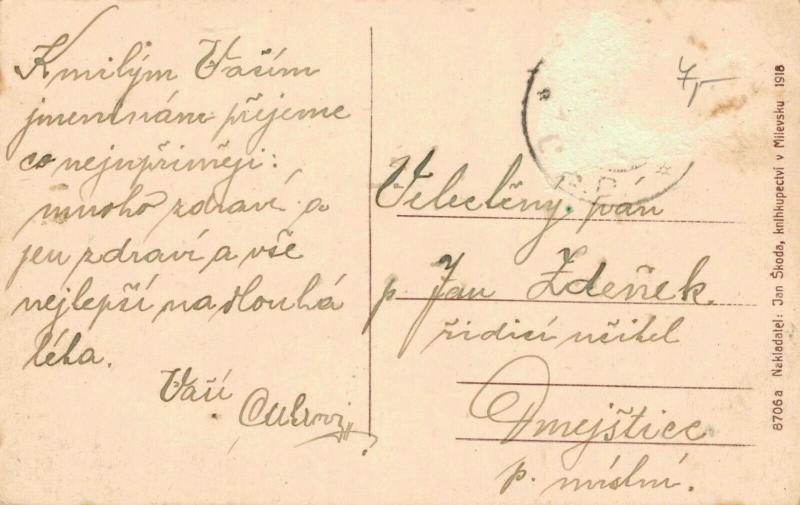 K milým Vaším
jmeninám přejeme
co nejupřiměji:
mnoho zdraví a
jen zdraví a vše
nejlepší na dlouhá
léta.
Vaší
7,-
Velectěný pán
p. Jan Zdeněk.
řidící učitel
Dmejštice
p. místní.
8706a Nakladatel: Jan Škoda, knihkupectví v Milevsku 1918